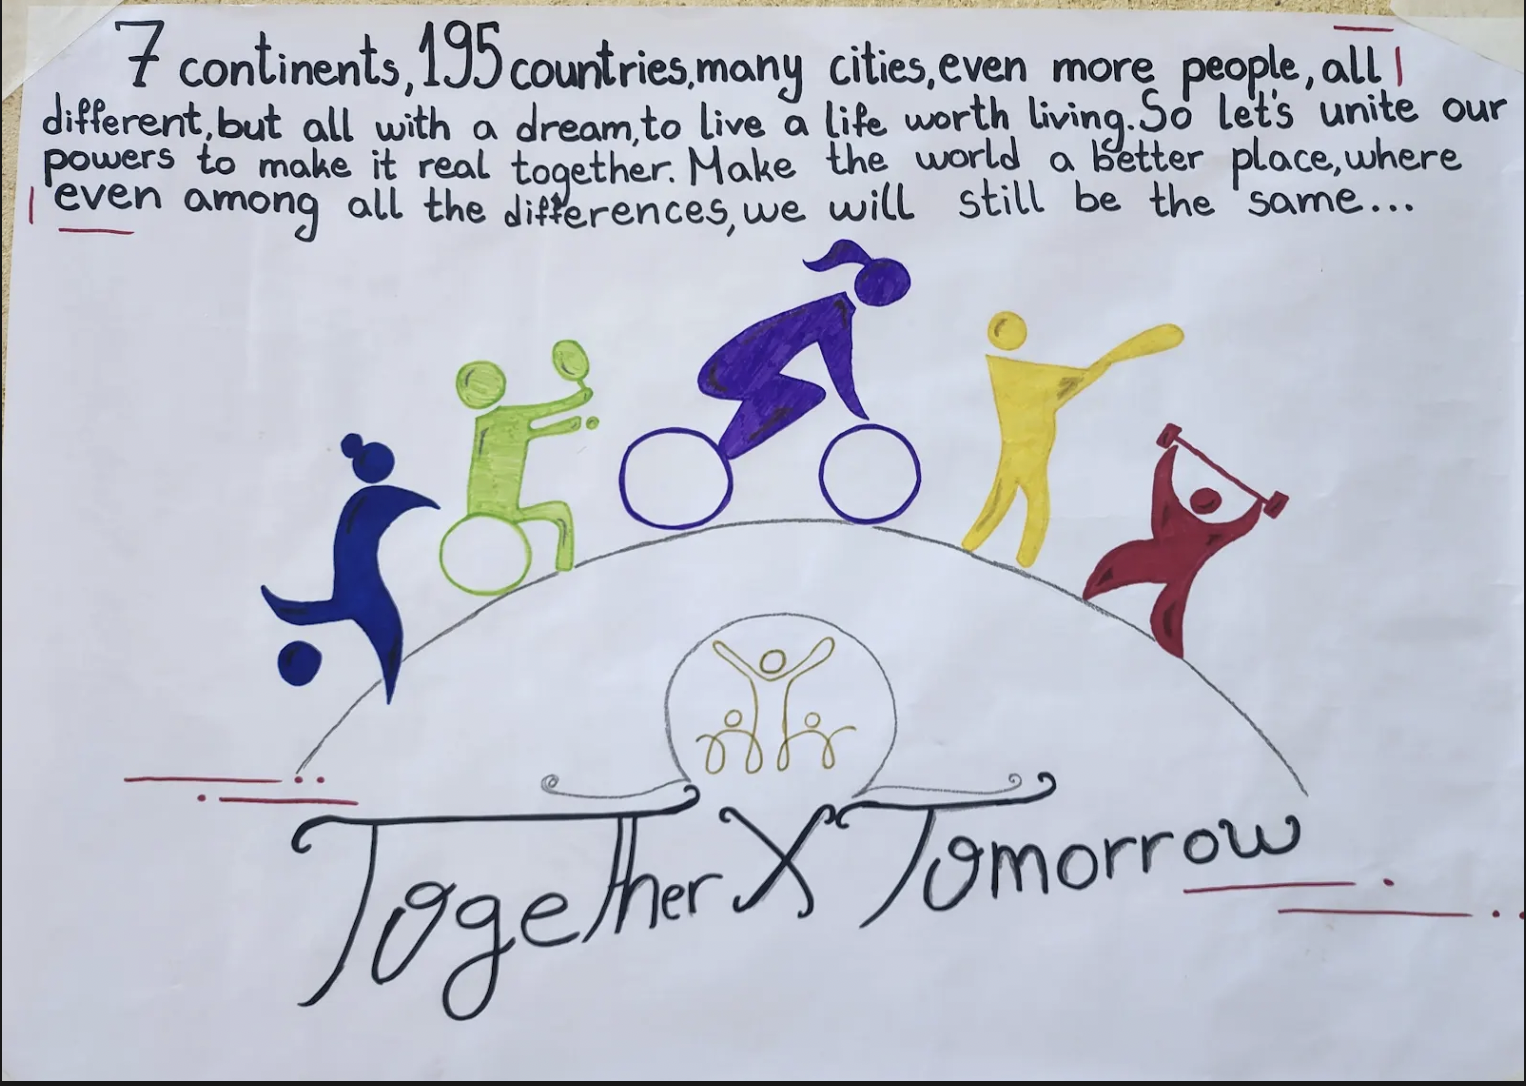 7 continents, 195 countries, many cities, even more people, all
different, but all with a dream, to live a life worth living. So let's unite our
powers to make it real together. Make the world a better place, where
even among all the differences, we will still be the same...
Together X Tomorrow